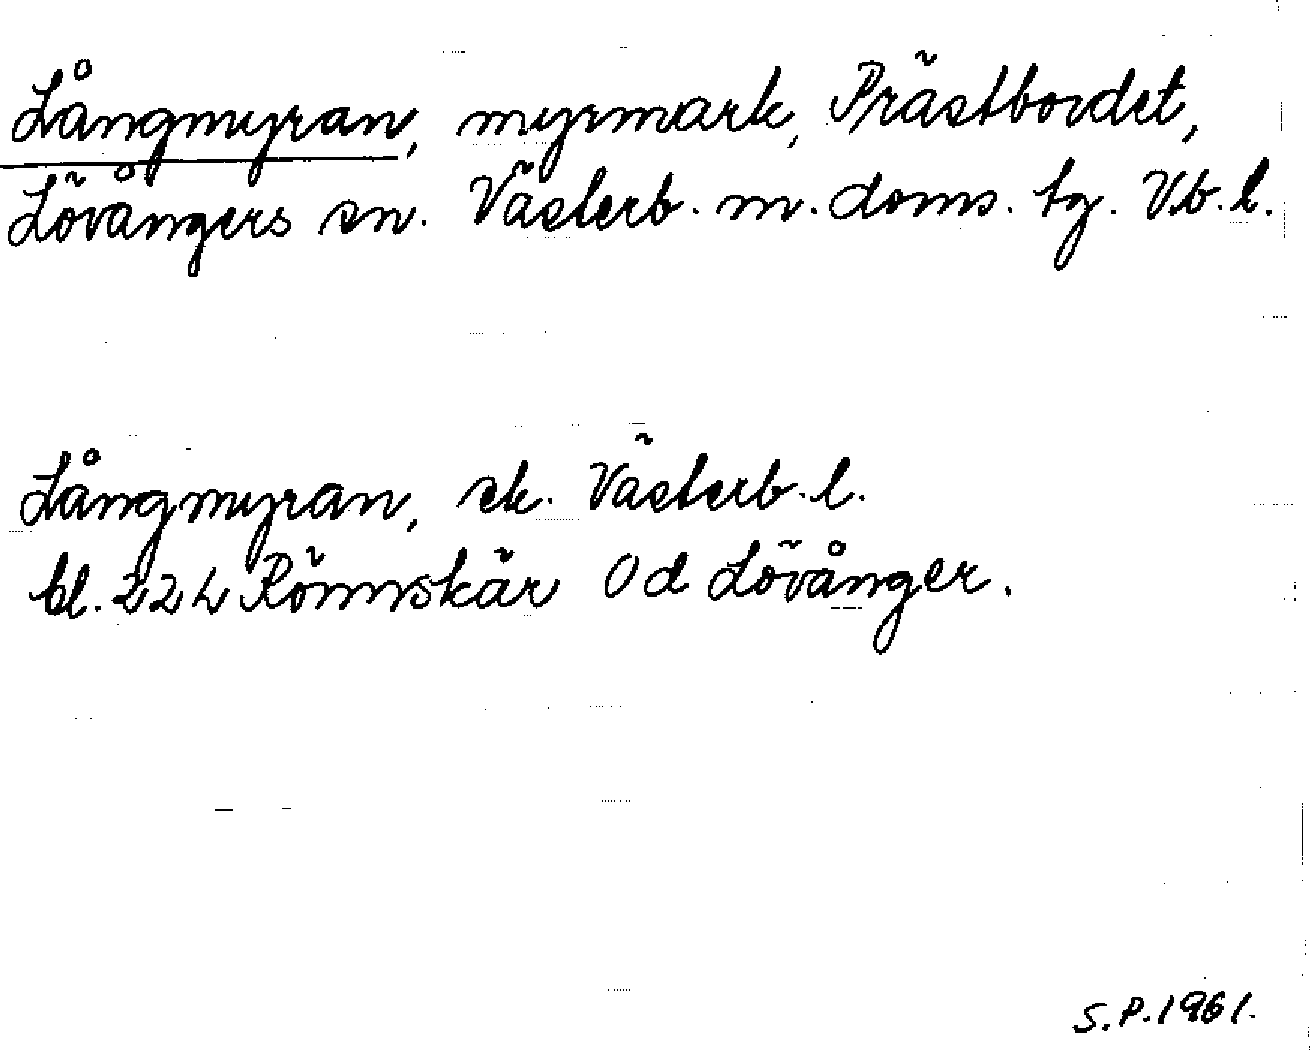 Långmyran, myrmark, Prästbordet,
Lövångers sn. Västerb. m. doms. tg. Vb. l.
Långmyran, ek. Västerb. l.
bl. 22 L Rönnskär Od Lövånger.
S.P. 1961.